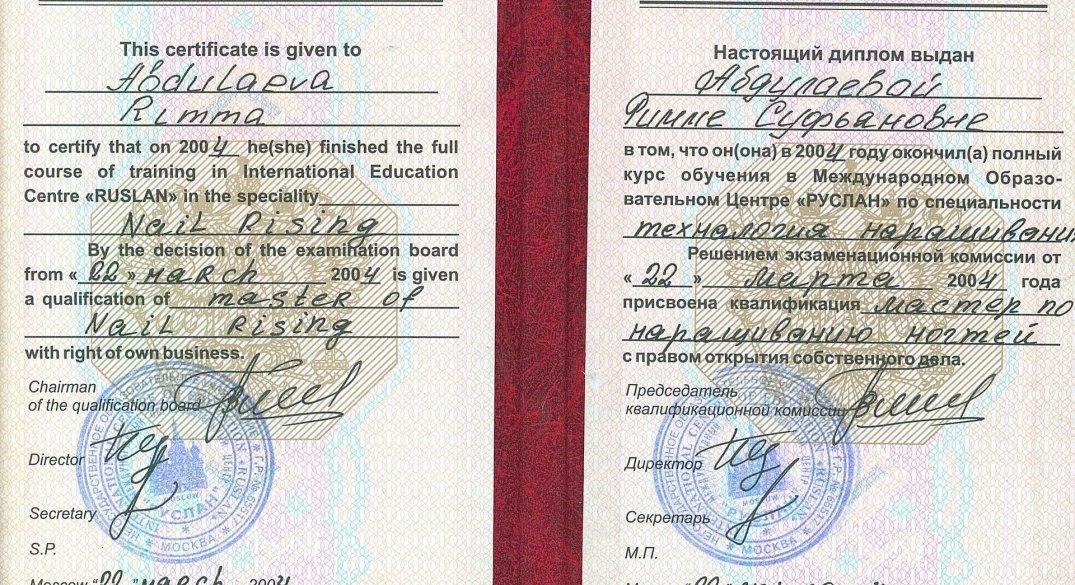 This certificate is given to
Abdulaeva
Rimma
to certify that on 2004 he(she) finished the full
course of training in International Education
Centre «RUSLAN» in the speciality
Nail Rising
By the decision of the examination board
from «22» march 2004 is given
a qualification of master of
Nail Rising
with right of own business.
Chairman
of the qualification board
Director
Secretary
S.P.
Moscow "22" march 2004
МОСКВА
Настоящий диплом выдан
Абдулаевой
Римме Суфьановне
в том, что он(она) в 2004 году окончил(а) полный
курс обучения в Международном Образо-
вательном Центре «РУСЛАН» по специальности
технология наращивания
Решением экзаменационной комиссии от
«22» марта 2004 года
присвоена квалификация мастер по
наращиванию ногтей
с правом открытия собственного дела.
Председатель
квалификационной комиссии
Директор
Секретарь
М.П.
МОСКВА